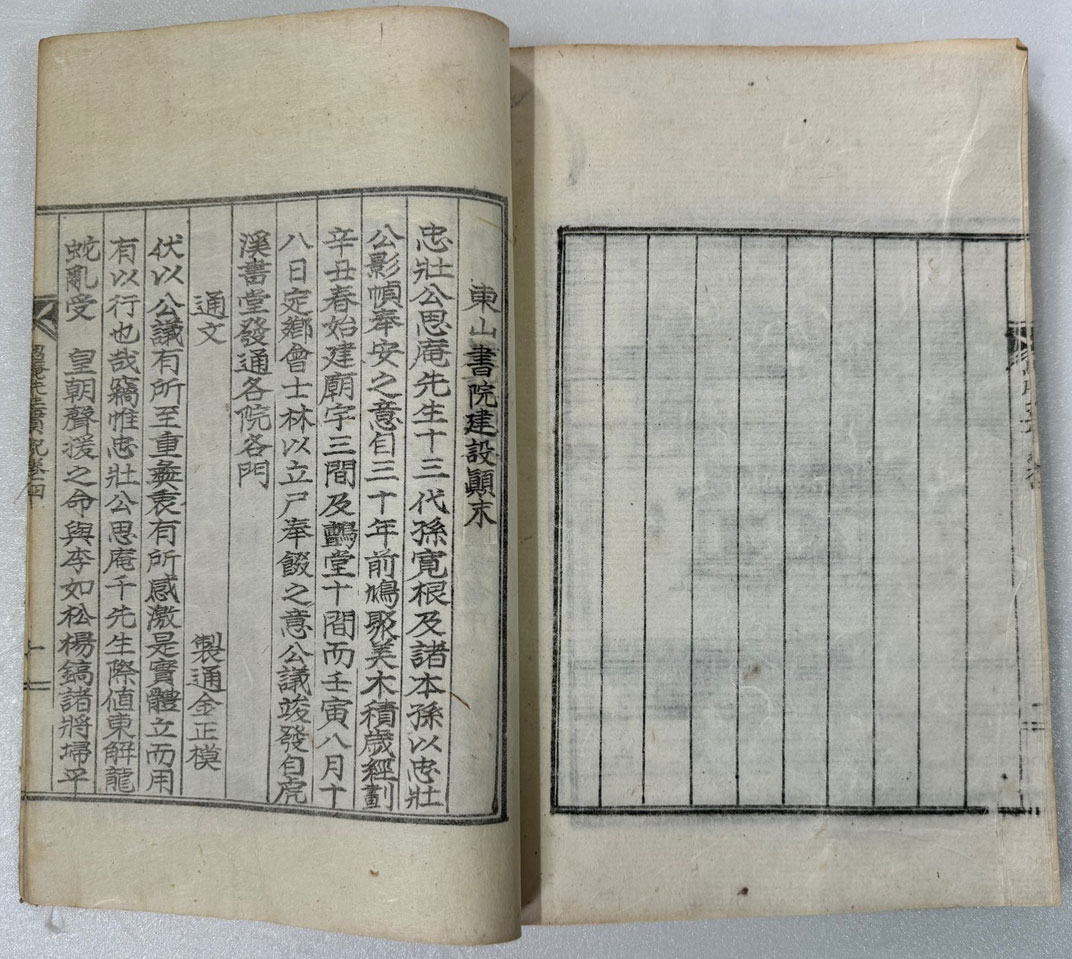 東山書院建設顚末
忠壯公思庵先生十三代孫寬根及諸本孫以忠壯
公影幀奉安之意自三十年前鳩聚美木積歲經劃
辛丑春始建廟宇三間及講堂十間而壬寅八月十
八日定鄕會士林以立尸奉餟之意公議竣發自虎
溪書堂發通各院各門
通文 製通金正模
伏以公議有所至重彝衷有所感激是實體立而用
有以行也哉竊惟忠壯公思庵千先生際値東解龍
蛇亂受 皇朝聲援之命與李如松楊鎬諸將埽平
思庵先生實記卷二四